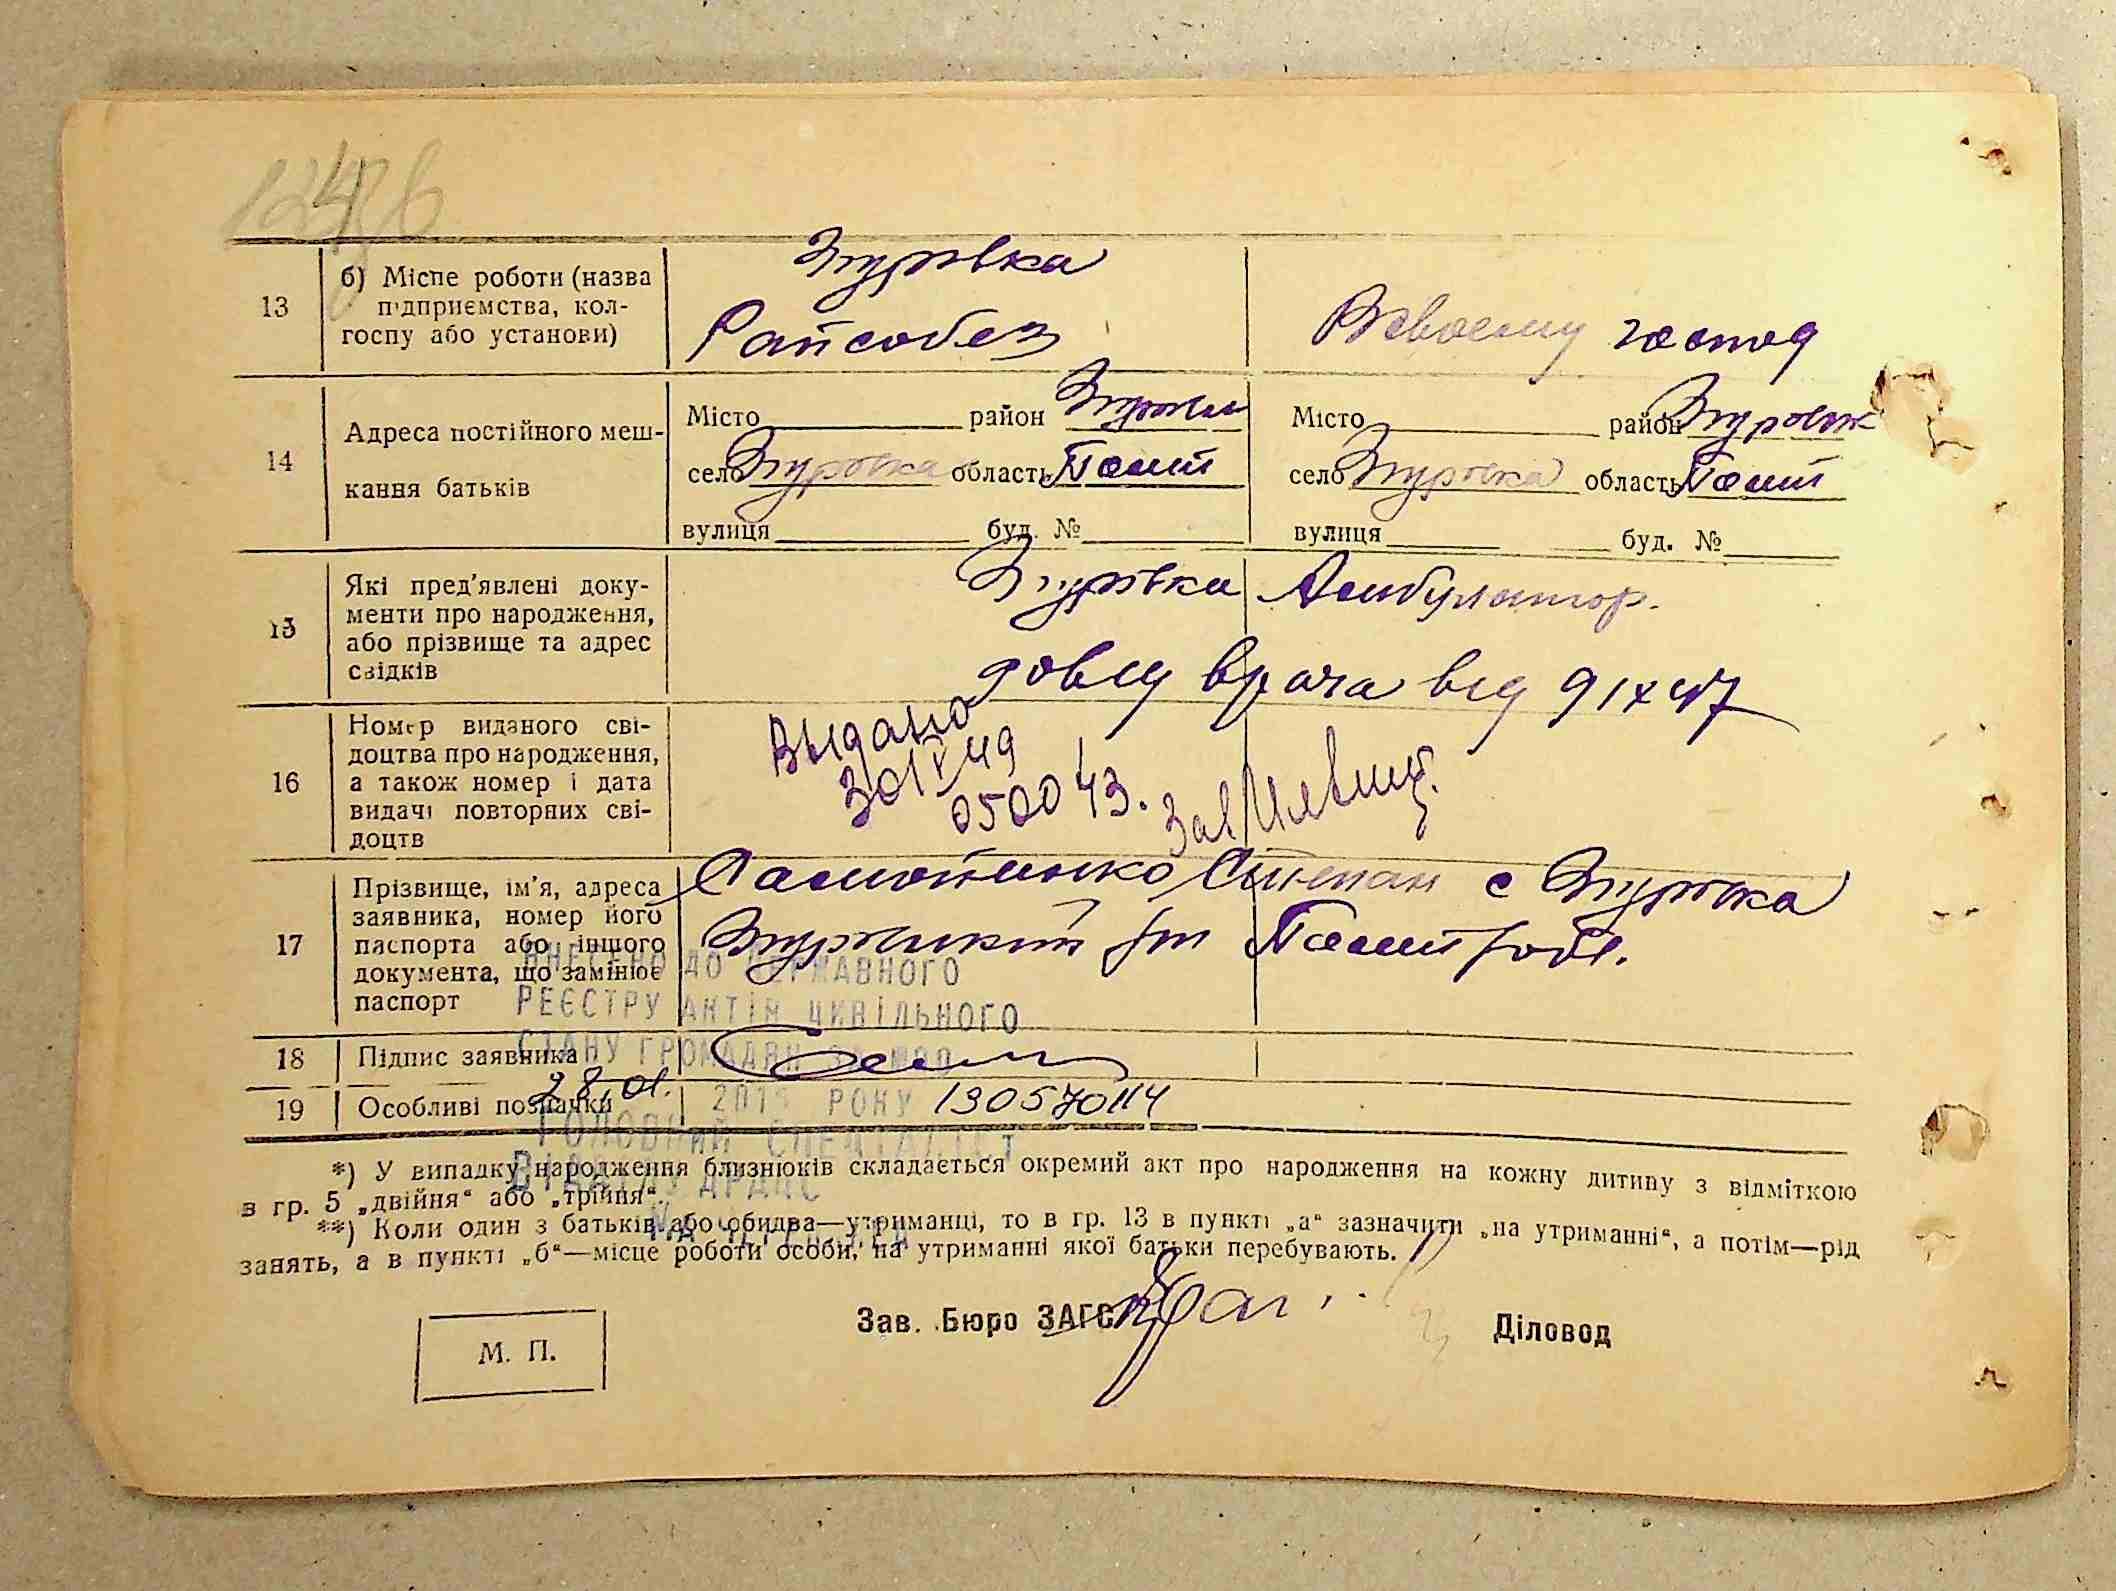 13
б) Місце роботи (назва
підприємства, кол-
госпу або установи)
Згурівка
Райсобез
В своєму господ
14
Адреса постійного меш-
кання батьків
Місто район Згурівськ
село Згурівка область Полт
вулиця буд. №
Місто район Згурівськ
село Згурівка область Полт
вулиця буд. №
15
Які пред'явлені доку-
менти про народження,
або прізвище та адрес
свідків
Згурівка Амбулатор.
довід врача від 9 IX 47
16
Номер виданого сві-
доцтва про народження,
а також номер і дата
видачі повторних сві-
доцтв
Выдано
30 IV 49
050043.
Зав
17
Прізвище, ім'я, адреса
заявника, номер його
паспорта або іншого
документа, що замінює
паспорт
Самойленко Степан с Згурівка
Згурівський Полт обл.
ВНЕСЕНО ДО ДЕРЖАВНОГО
РЕЄСТРУ АКТІВ ЦИВІЛЬНОГО
СТАНУ ГРОМАДЯН ЗА №00
18
Підпис заявника
28.01. РОКУ 130570114
19
Особливі позначки
ГОЛОВНИЙ СПЕЦІАЛІСТ
ВІДДІЛУ ДРАЦС
*) У випадку народження близнюків складається окремий акт про народження на кожну дитину з відміткою
в гр. 5 „двійня“ або „трійня“.
**) Коли один з батьків або обидва—утриманці, то в гр. 13 в пункті „а“ зазначити „на утриманні“, а потім—рід
занять, а в пункті „б“—місце роботи особи, на утриманні якої батьки перебувають.
М. П.
Зав. Бюро ЗАГС
Діловод